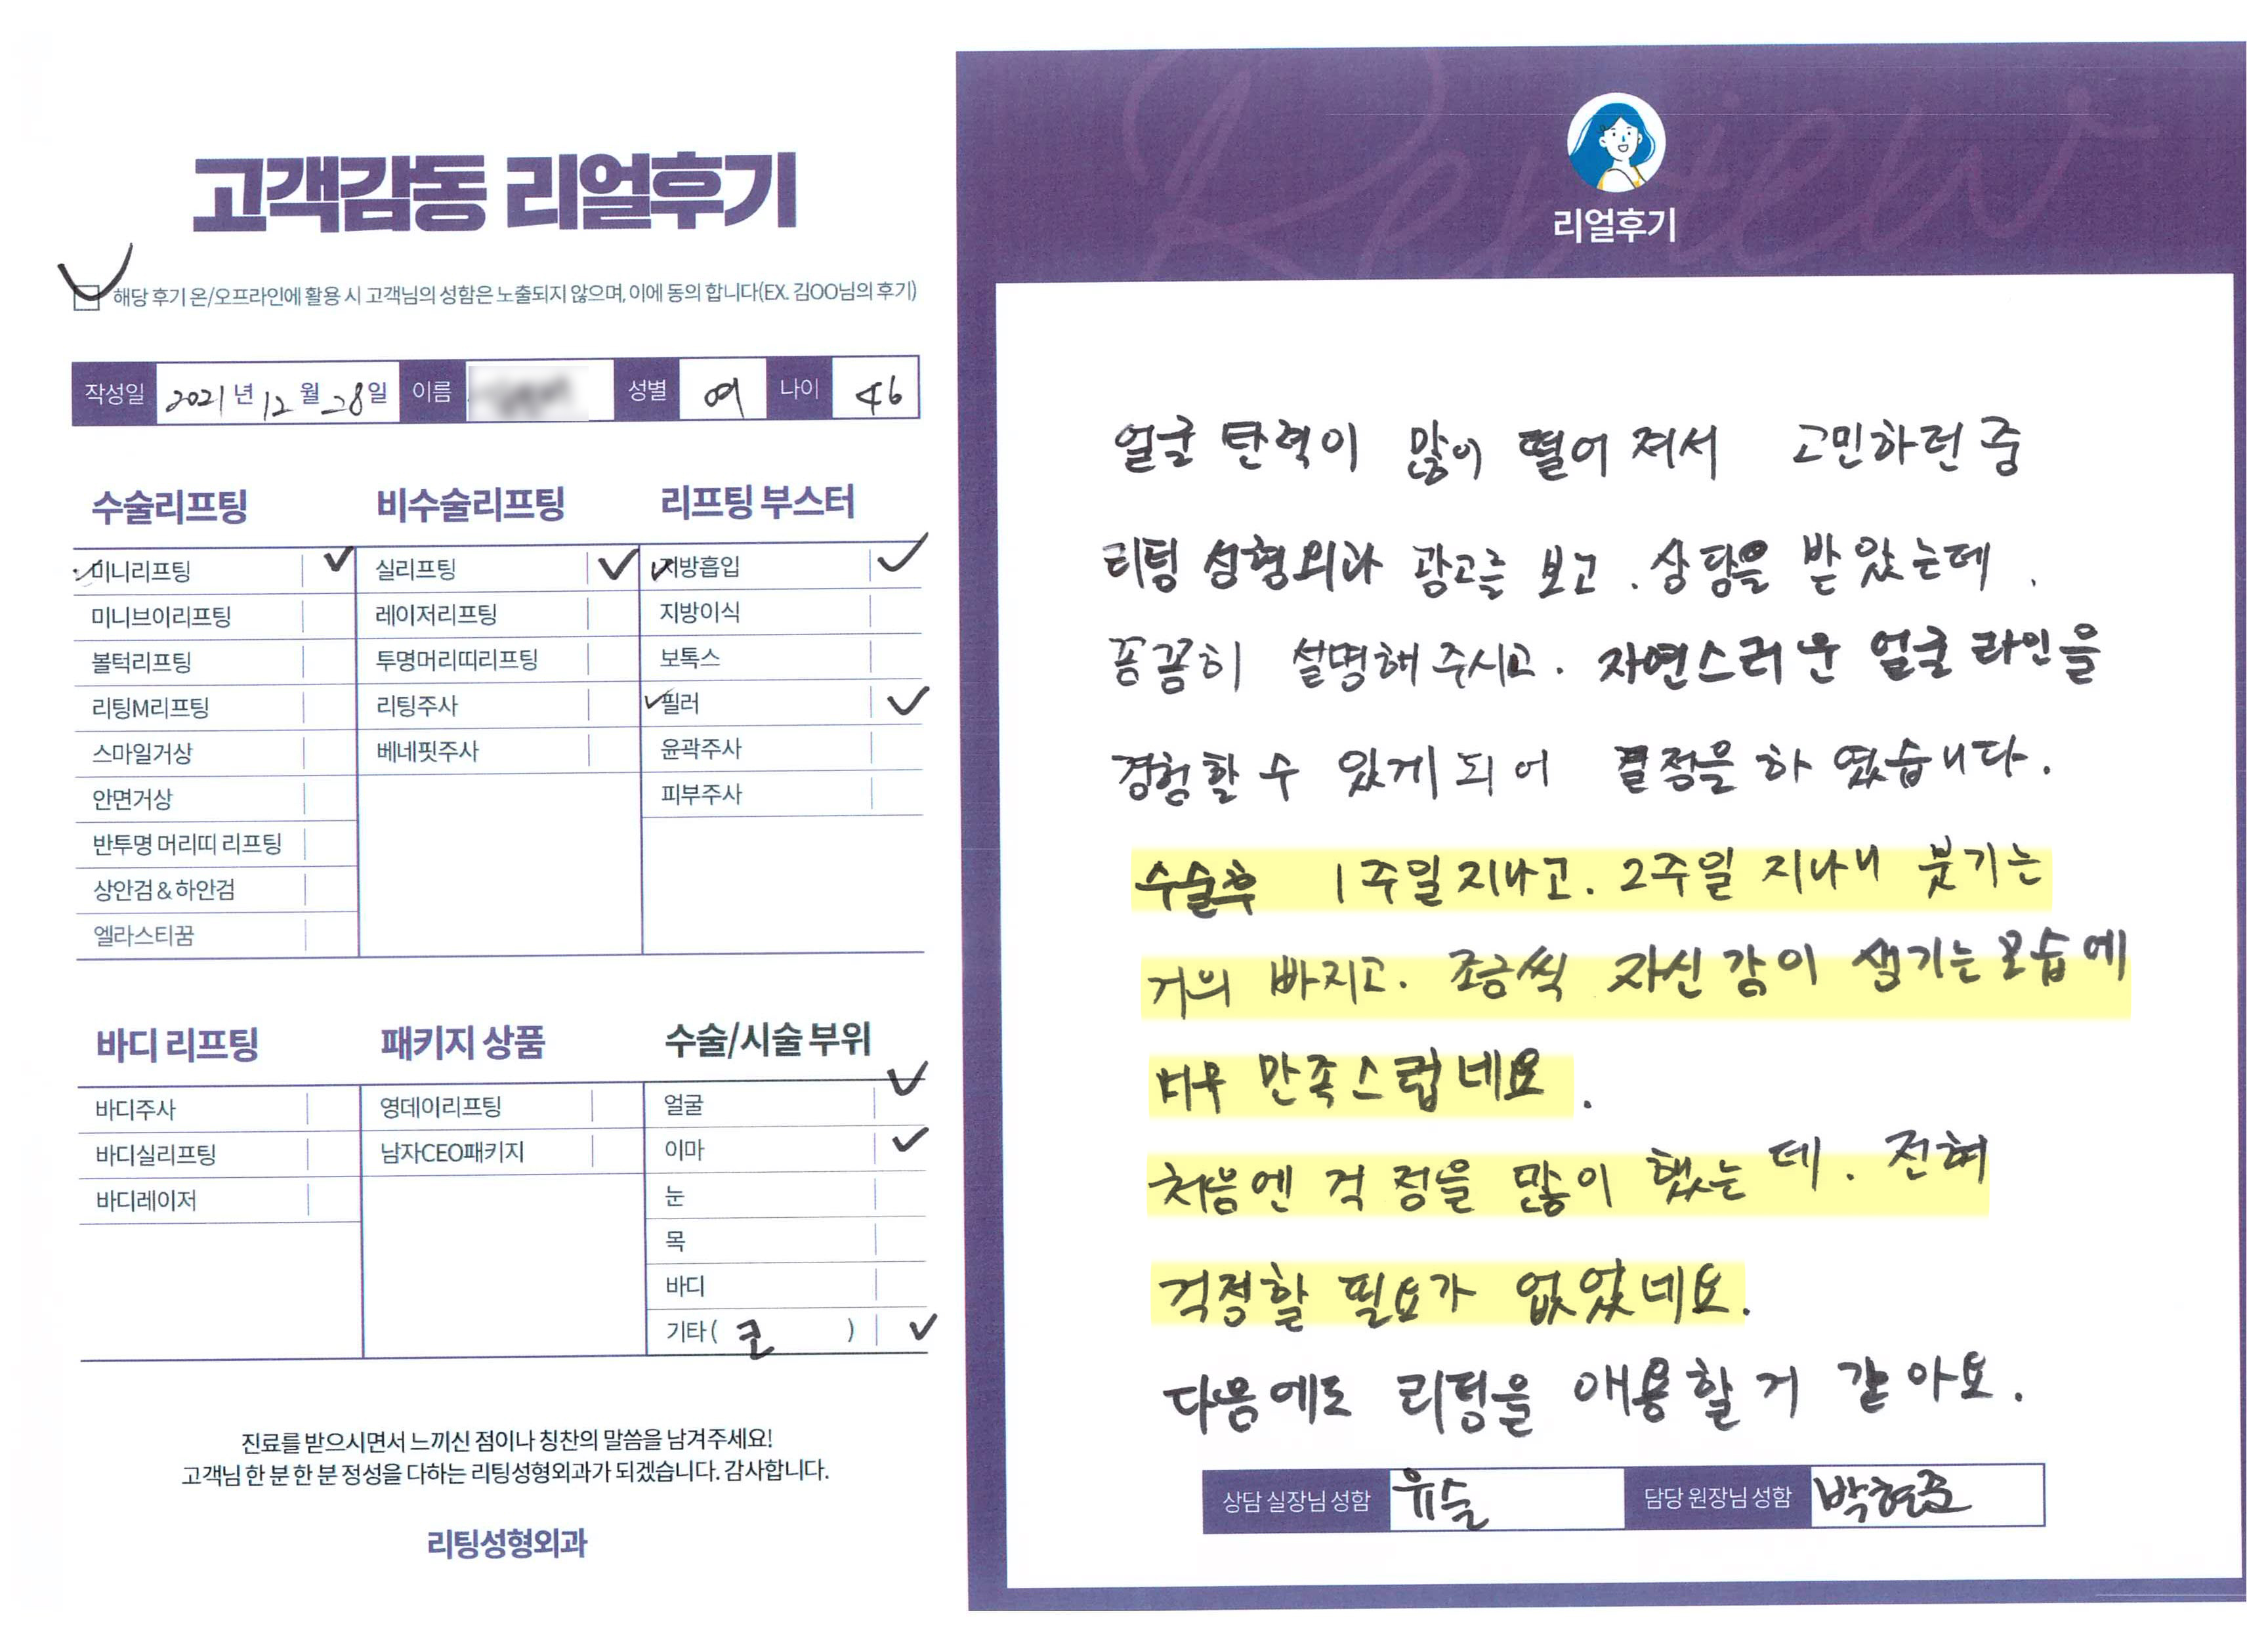 고객감동 리얼후기
해당 후기 온/오프라인에 활용 시 고객님의 성함은 노출되지 않으며, 이에 동의 합니다(EX. 김OO님의 후기)
작성일 2021년 12월 28일 이름 성별 여 나이 46
수술리프팅
미니리프팅
미니브이리프팅
볼턱리프팅
리팅M리프팅
스마일거상
안면거상
반투명 머리띠 리프팅
상안검&하안검
엘라스티꿈
비수술리프팅
실리프팅
레이저리프팅
투명머리띠리프팅
리팅주사
베네핏주사
리프팅 부스터
지방흡입
지방이식
보톡스
필러
윤곽주사
피부주사
바디 리프팅
바디주사
바디실리프팅
바디레이저
패키지 상품
영데이리프팅
남자CEO패키지
수술/시술 부위
얼굴
이마
눈
목
바디
기타( 코 )
진료를 받으시면서 느끼신 점이나 칭찬의 말씀을 남겨주세요!
고객님 한 분 한 분 정성을 다하는 리팅성형외과가 되겠습니다. 감사합니다.
리팅성형외과
Review
리얼후기
얼굴 탄력이 많이 떨어 져서 고민하던 중
리팅 성형외과 광고를 보고. 상담을 받았는데.
꼼꼼히 설명해주시고. 자연스러운 얼굴 라인을
경험할 수 있게 되어 결정을 하였습니다.
수술후 1주일지나고. 2주일 지나니 붓기는
거의 빠지고. 조금씩 자신감이 생기는 모습에
너무 만족스럽네요.
처음엔 걱정을 많이 했는데. 전혀
걱정할 필요가 없었네요.
다음에도 리팅을 애용할 거 같아요.
상담 실장님 성함 유슬 담당 원장님 성함 박현준